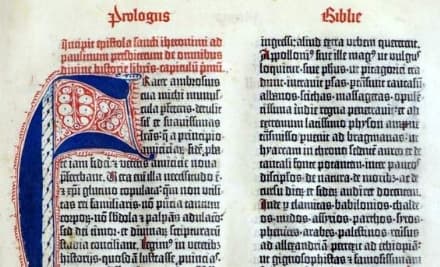 Prologus
Biblie
Incipit epistola sancti iheronimi ad
paulinum presbiterum de omnibus
divine historie libris·capitulũ primũ.
Frater ambrosius
tua michi munus-
cula perferens·detulit
sil et suavissimas
lrãs·q̃ a principio
amicicia℞·fidẽ ꝓba-
te iam fidei et veteris amicicie nova
p̃ferebant. Vera eni illa necessitudo ẽ·
et xp̃i glutino copulata·qm non utili-
tas rei familiaris·nõ pñcia tantum
corpo℞·nõ sbdola et palpãs adulacõ·
sed dei timor·et divina℞ scriptura℞
studia conciliant. Legim⁹ in veterib⁹
historijs·quosdã lustrasse·provĩcias·
ingressi·aliud extra urbem quererent.
Apolloni⁹ sive ille mag⁹ ut vulgus
loquitur·sive ph̃us·ut pitagorici tra-
dunt·intravit p̃sas·p̃transivit caucasũ·
albanos·scithas·massagetas·opulẽ-
tissima indie regna penetravit·et ad
extremum latissimo physon ampne
trãsmisso pvenit ad bragmanas·ut
hyarcam in throno sedentẽ aureo et de
tantali fonte potantem·inter paucos
discipulos·de natura·de moribus ac de
cursu die℞ et side℞ audiret docentem.
Inde p elamitas·babilonios·chalde-
os·medos·assyrios·parthos·syros·
phenices·arabes·palestinos·reversus
ad alexandriã·perrexit ad ethiopiã·
ut gignosophistas et famosissimam